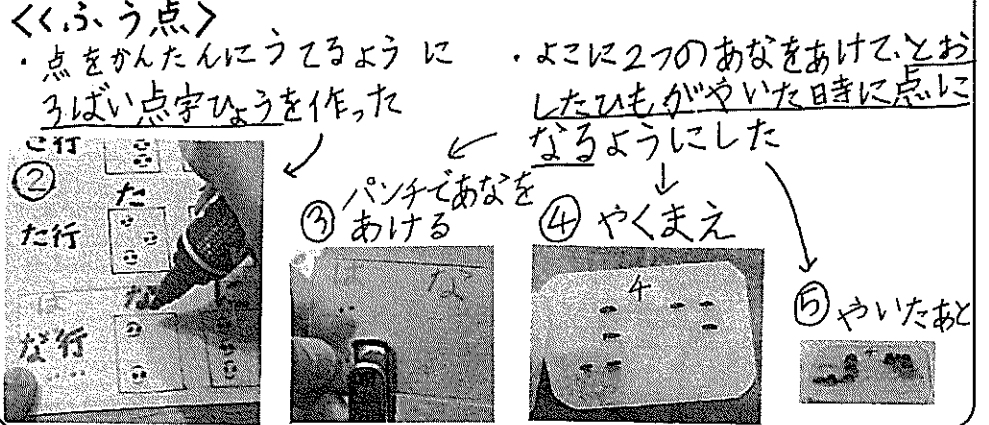 <くふう点>
・点をかんたんにうてるように
3ばい点字ひょうを作った
・よこに2つのあなをあけて、とお
したひもがやいた時に点に
なるようにした
②
た
た行
な
な行
③ パンチであなを
あける
な
④ やくまえ
4
⑤ やいたあと